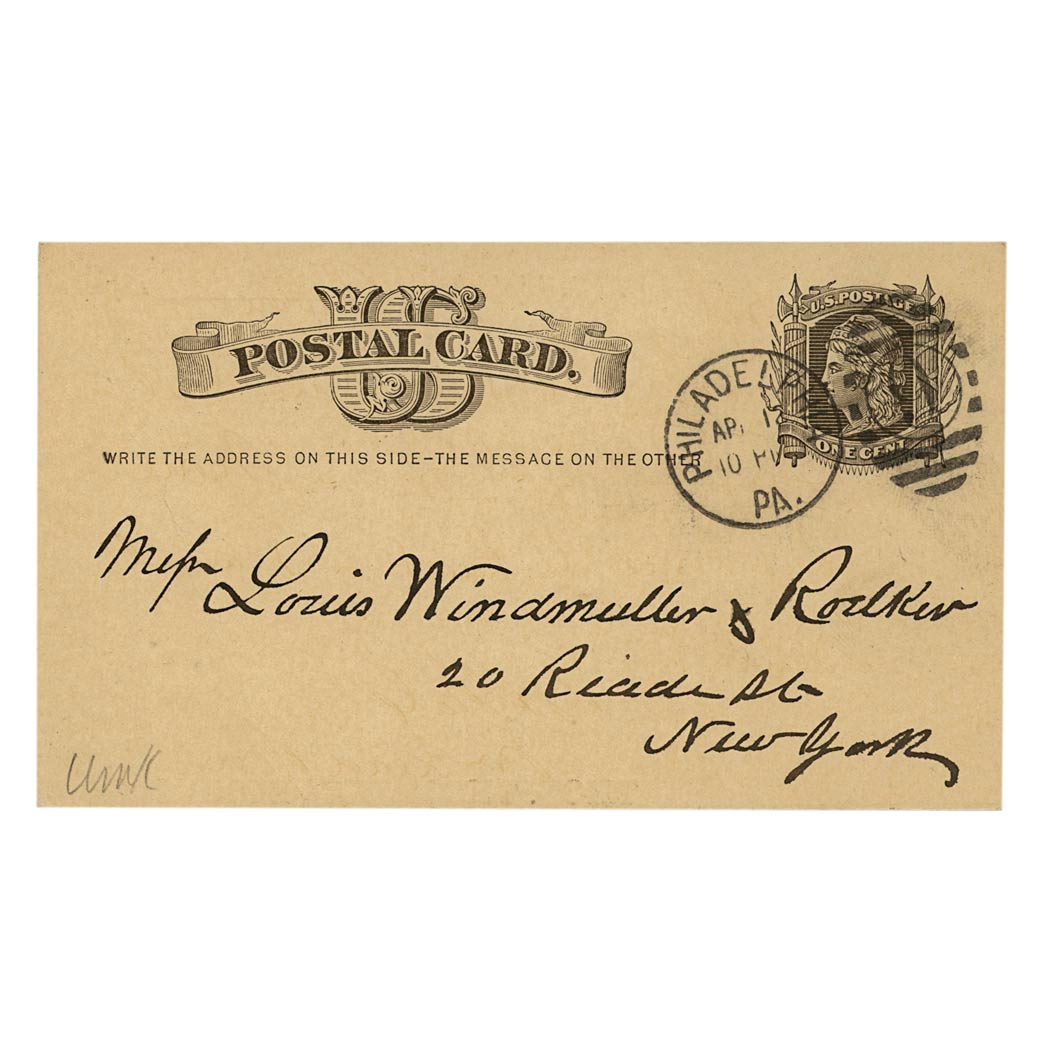 US
POSTAL CARD.
U.S. POSTAGE
ONE CENT
WRITE THE ADDRESS ON THIS SIDE–THE MESSAGE ON THE OTHER
PHILADELPHIA
10 PM
PA.
Mess Louis Windmuller & Roelker
20 Reade St
New York